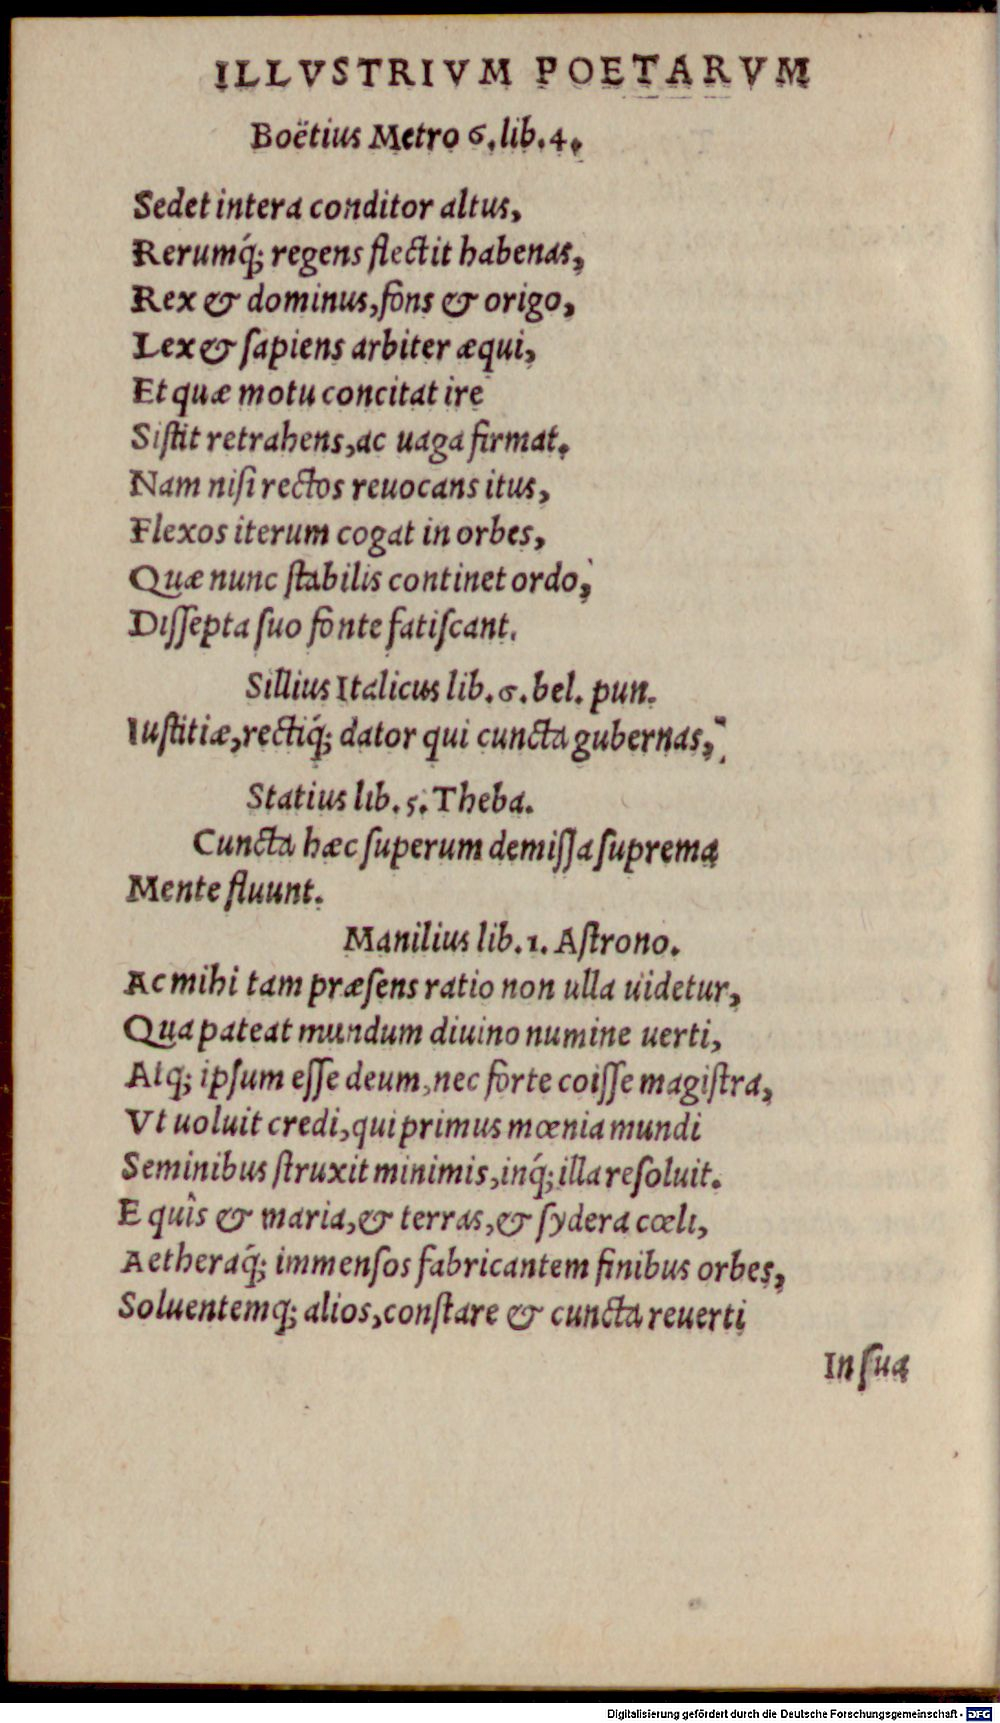 ILLVSTRIVM POETARVM
Boëtius Metro 6. lib. 4.
Sedet intera conditor altus,
Rerumq́; regens flectit habenas,
Rex & dominus, fons & origo,
Lex & ſapiens arbiter æqui,
Et quæ motu concitat ire
Siſtit retrahens, ac uaga firmat.
Nam niſi rectos reuocans itus,
Flexos iterum cogat in orbes,
Quæ nunc ſtabilis continet ordo,
Diſſepta ſuo fonte fatiſcant.
Sillius Italicus lib. 6. bel. pun.
Iuſtitiæ, rectiq́; dator qui cuncta gubernas,
Statius lib. 5. Theba.
Cuncta hæc ſuperum demiſſa ſuprema
Mente fluunt.
Manilius lib. 1. Aſtrono.
Ac mihi tam præſens ratio non ulla uidetur,
Qua pateat mundum diuino numine uerti,
Atq; ipſum eſſe deum, nec forte coiſſe magiſtra,
Vt uoluit credi, qui primus mœnia mundi
Seminibus ſtruxit minimis, inq́; illa reſoluit.
E quîs & maria, & terras, & ſydera cœli,
Aetheraq́; immenſos fabricantem finibus orbes,
Soluentemq; alios, conſtare & cuncta reuerti
In ſua
Digitalisierung gefördert durch die Deutsche Forschungsgemeinschaft - DFG